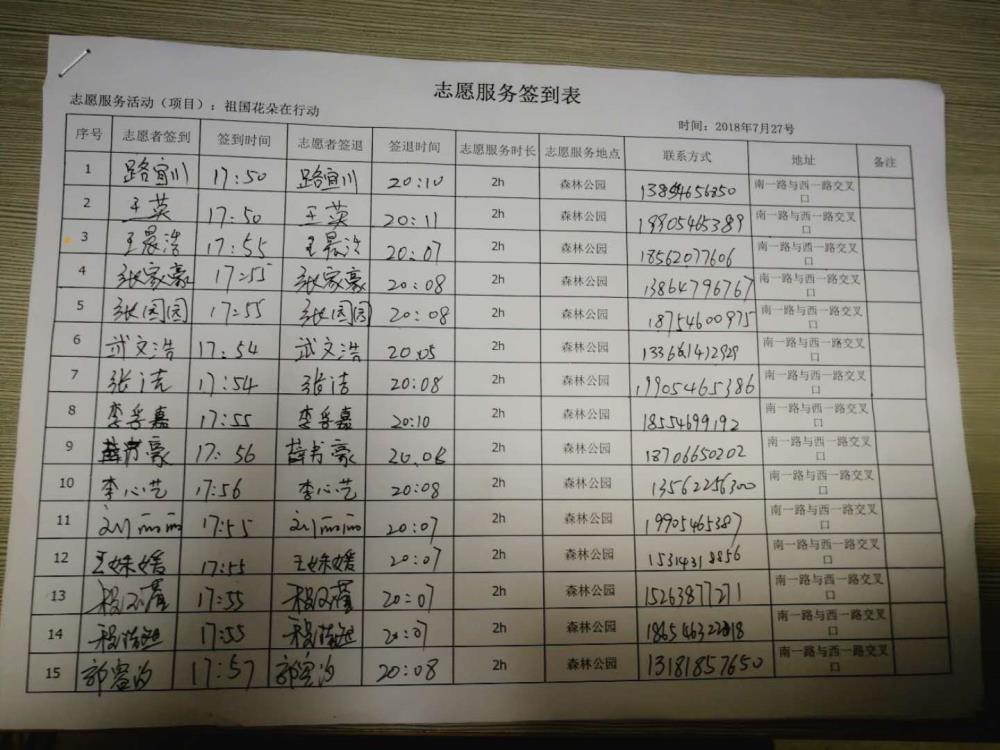 志愿服务签到表
志愿服务活动（项目）：祖国花朵在行动
时间：2018年7月27号
序号 志愿者签到 签到时间 志愿者签退 签退时间 志愿服务时长 志愿服务地点 联系方式 地址 备注
1 路宜川 17:50 路宜川 20:10 2h 森林公园 南一路与西一路交叉口
2 王英 17:50 王英 20:11 2h 森林公园 19905465389 南一路与西一路交叉口
3 王晨浩 17:55 王晨浩 20:07 2h 森林公园 18562077606 南一路与西一路交叉口
4 张家豪 17:55 张家豪 20:08 2h 森林公园 13864796767 南一路与西一路交叉口
5 张园园 17:55 张园园 20:08 2h 森林公园 18754600975 南一路与西一路交叉口
6 武文浩 17:54 武文浩 20:05 2h 森林公园 南一路与西一路交叉口
7 张洁 17:54 张洁 20:08 2h 森林公园 19905465386 南一路与西一路交叉口
8 李孚嘉 17:55 李孚嘉 20:10 2h 森林公园 18554699192 南一路与西一路交叉口
9 薛书豪 17:56 薛书豪 20:08 2h 森林公园 18706650202 南一路与西一路交叉口
10 李心艺 17:56 李心艺 20:08 2h 森林公园 13562256300 南一路与西一路交叉口
11 刘丽丽 17:55 刘丽丽 20:07 2h 森林公园 19905465387 南一路与西一路交叉口
12 王姝媛 17:55 王姝媛 20:07 2h 森林公园 15314318856 南一路与西一路交叉口
13 17:55 20:07 2h 森林公园 15263877271 南一路与西一路交叉口
14 17:55 20:07 2h 森林公园 南一路与西一路交叉口
15 17:57 20:08 2h 森林公园 13181857650 南一路与西一路交叉口